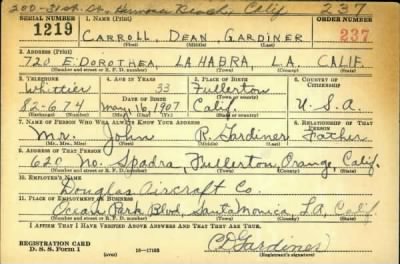 200-31st. St. Hermosa Beach, Calif. 237
SERIAL NUMBER 1. NAME (Print) ORDER NUMBER
1219 CARROLL, DEAN GARDINER 237
(First) (Middle) (Last)
2. ADDRESS (Print)
720 E. DOROTHEA, LA HABRA, L.A. CALIF.
(Number and street or R. F. D. number) (Town) (County) (State)
3. TELEPHONE 4. AGE IN YEARS 5. PLACE OF BIRTH 6. COUNTRY OF CITIZENSHIP
Whittier 33 Fullerton
DATE OF BIRTH (Town or county)
82-674 May 16, 1907 Calif. U.S.A.
7. NAME OF PERSON WHO WILL ALWAYS KNOW YOUR ADDRESS 8. RELATIONSHIP OF THAT PERSON
Mr. John R. Gardiner Father
(Mr., Mrs., Miss) (First) (Middle) (Last)
9. ADDRESS OF THAT PERSON
620 no. Spadra, Fullerton, Orange, Calif.
(Number and street or R. F. D. number) (Town) (County) (State)
10. EMPLOYER'S NAME
Douglas Aircraft Co.
11. PLACE OF EMPLOYMENT OR BUSINESS
Ocean Park Blvd, Santa Monica, LA, Calif.
(Number and street or R. F. D. number) (Town) (County) (State)
I AFFIRM THAT I HAVE VERIFIED ABOVE ANSWERS AND THAT THEY ARE TRUE.
REGISTRATION CARD
D. S. S. Form 1 (over) 16-17105 (Registrant's signature)
CDGardiner